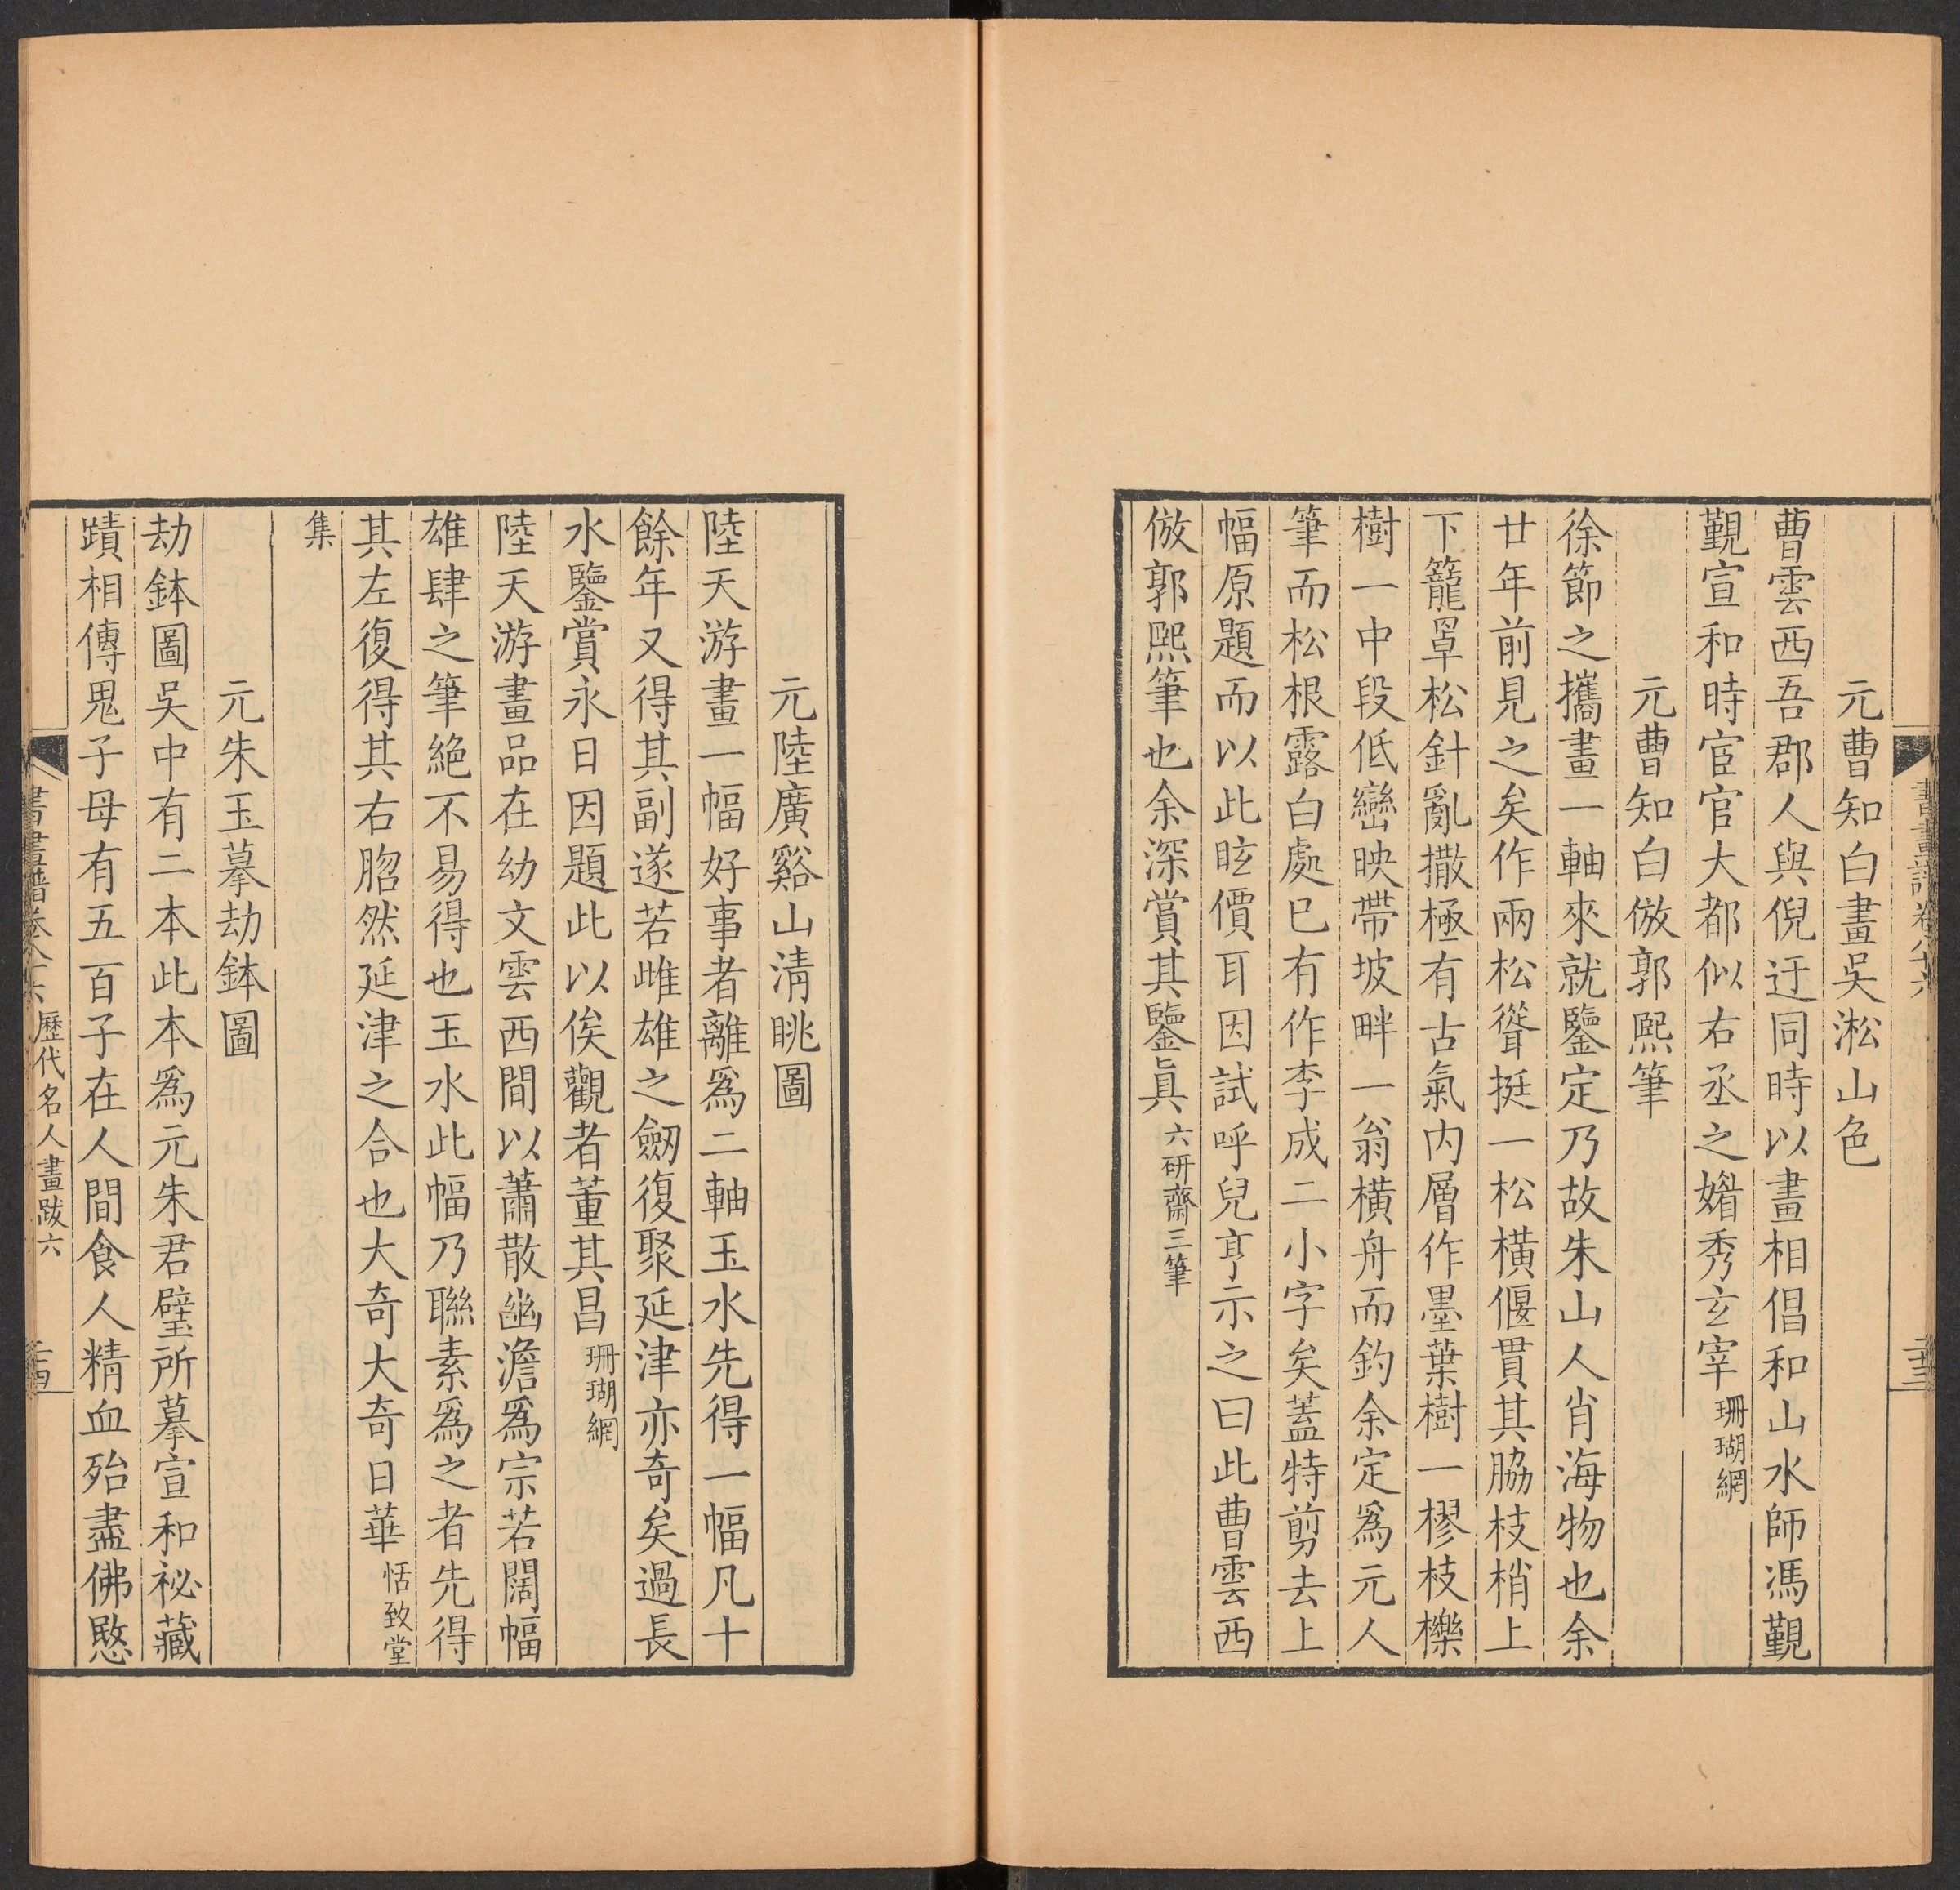 元曹知白畫吳淞山色
曹雲西吾郡人與倪迂同時以畫相倡和山水師馮覲
覲宣和時宦官大都似右丞之媚秀玄宰珊瑚網
元曹知白倣郭熙筆
徐節之攜畫一軸來就鑒定乃故朱山人肖海物也余
廿年前見之矣作兩松聳挺一松橫偃貫其脇枝梢上
下籠罩松針亂撒極有古氣內層作墨葉樹一樛枝櫟
樹一中段低巒映帶坡畔一翁橫舟而釣余定爲元人
筆而松根露白處已有作李成二小字矣蓋特剪去上
幅原題而以此眩價耳因試呼兒亨示之曰此曹雲西
倣郭熙筆也余深賞其鑒眞六研齋三筆
書畫譜卷八十六
二十三
元陸廣谿山淸眺圖
陸天游畫一幅好事者離爲二軸玉水先得一幅凡十
餘年又得其副遂若雌雄之劒復聚延津亦奇矣過長
水鑒賞永日因題此以俟觀者董其昌珊瑚網
陸天游畫品在幼文雲西間以蕭散幽澹爲宗若闊幅
雄肆之筆絕不易得也玉水此幅乃聯素爲之者先得
其左復得其右脗然延津之合也大奇大奇日華恬致堂
集
元朱玉摹劫鉢圖
劫鉢圖吳中有二本此本爲元朱君璧所摹宣和祕藏
蹟相傳鬼子母有五百子在人間食人精血殆盡佛愍
書畫譜卷八十六 歷代名人畫跋六
二十四